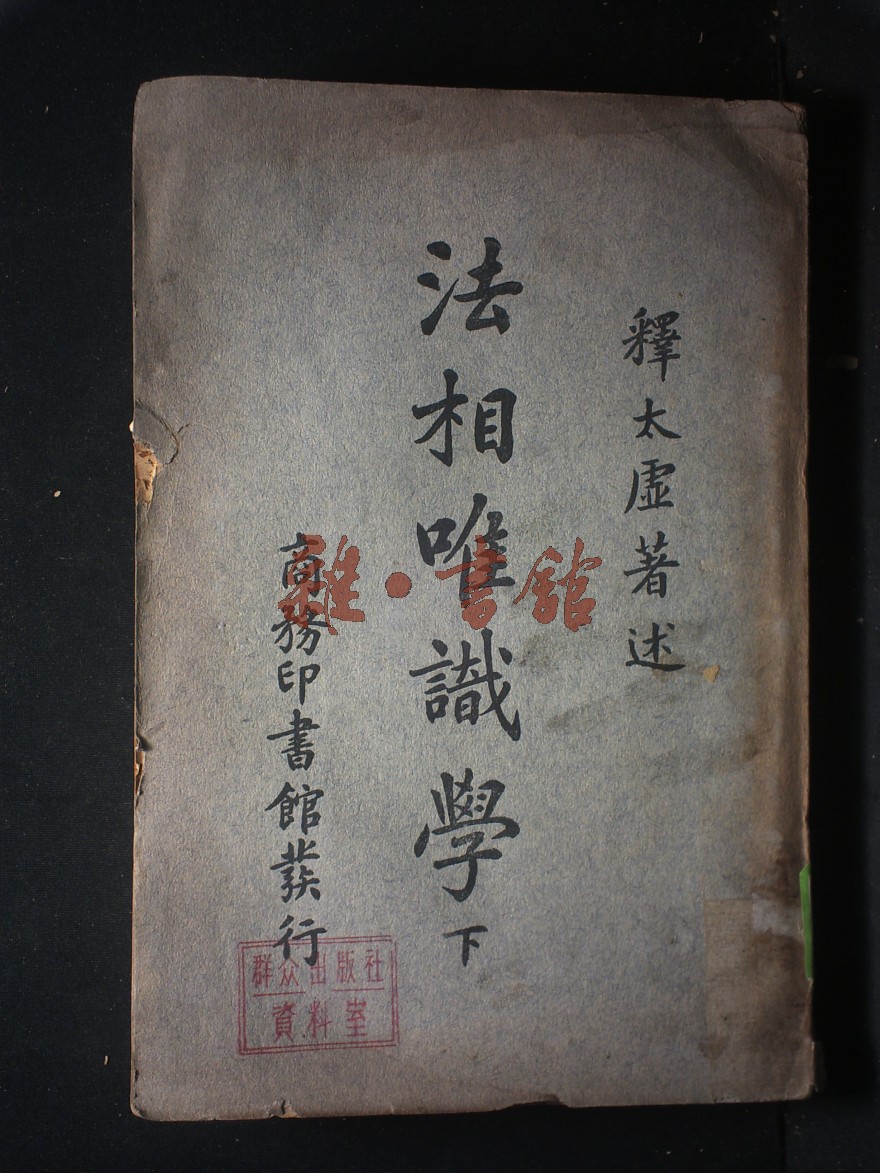 釋太虛著述
法相唯識學下
商務印書館發行
雜·書館
群众出版社
資料室